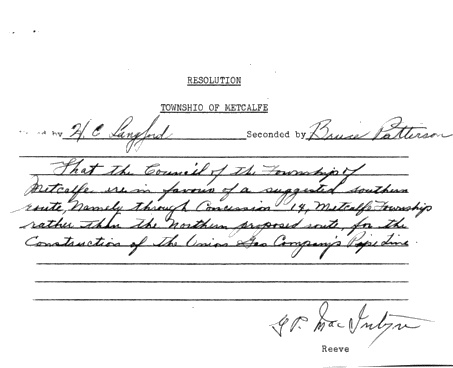 RESOLUTION
TOWNSHIP OF METCALFE
by H. C. Langford Seconded by Bruce Patterson
That the Council of the Township of
Metcalfe are in favour of a suggested southern
route, Namely through Concession 14, Metcalfe Township
rather than the northern proposed route, for the
Construction of the Union Gas Company's Pipe Line.
G P. Mac Intyre
Reeve